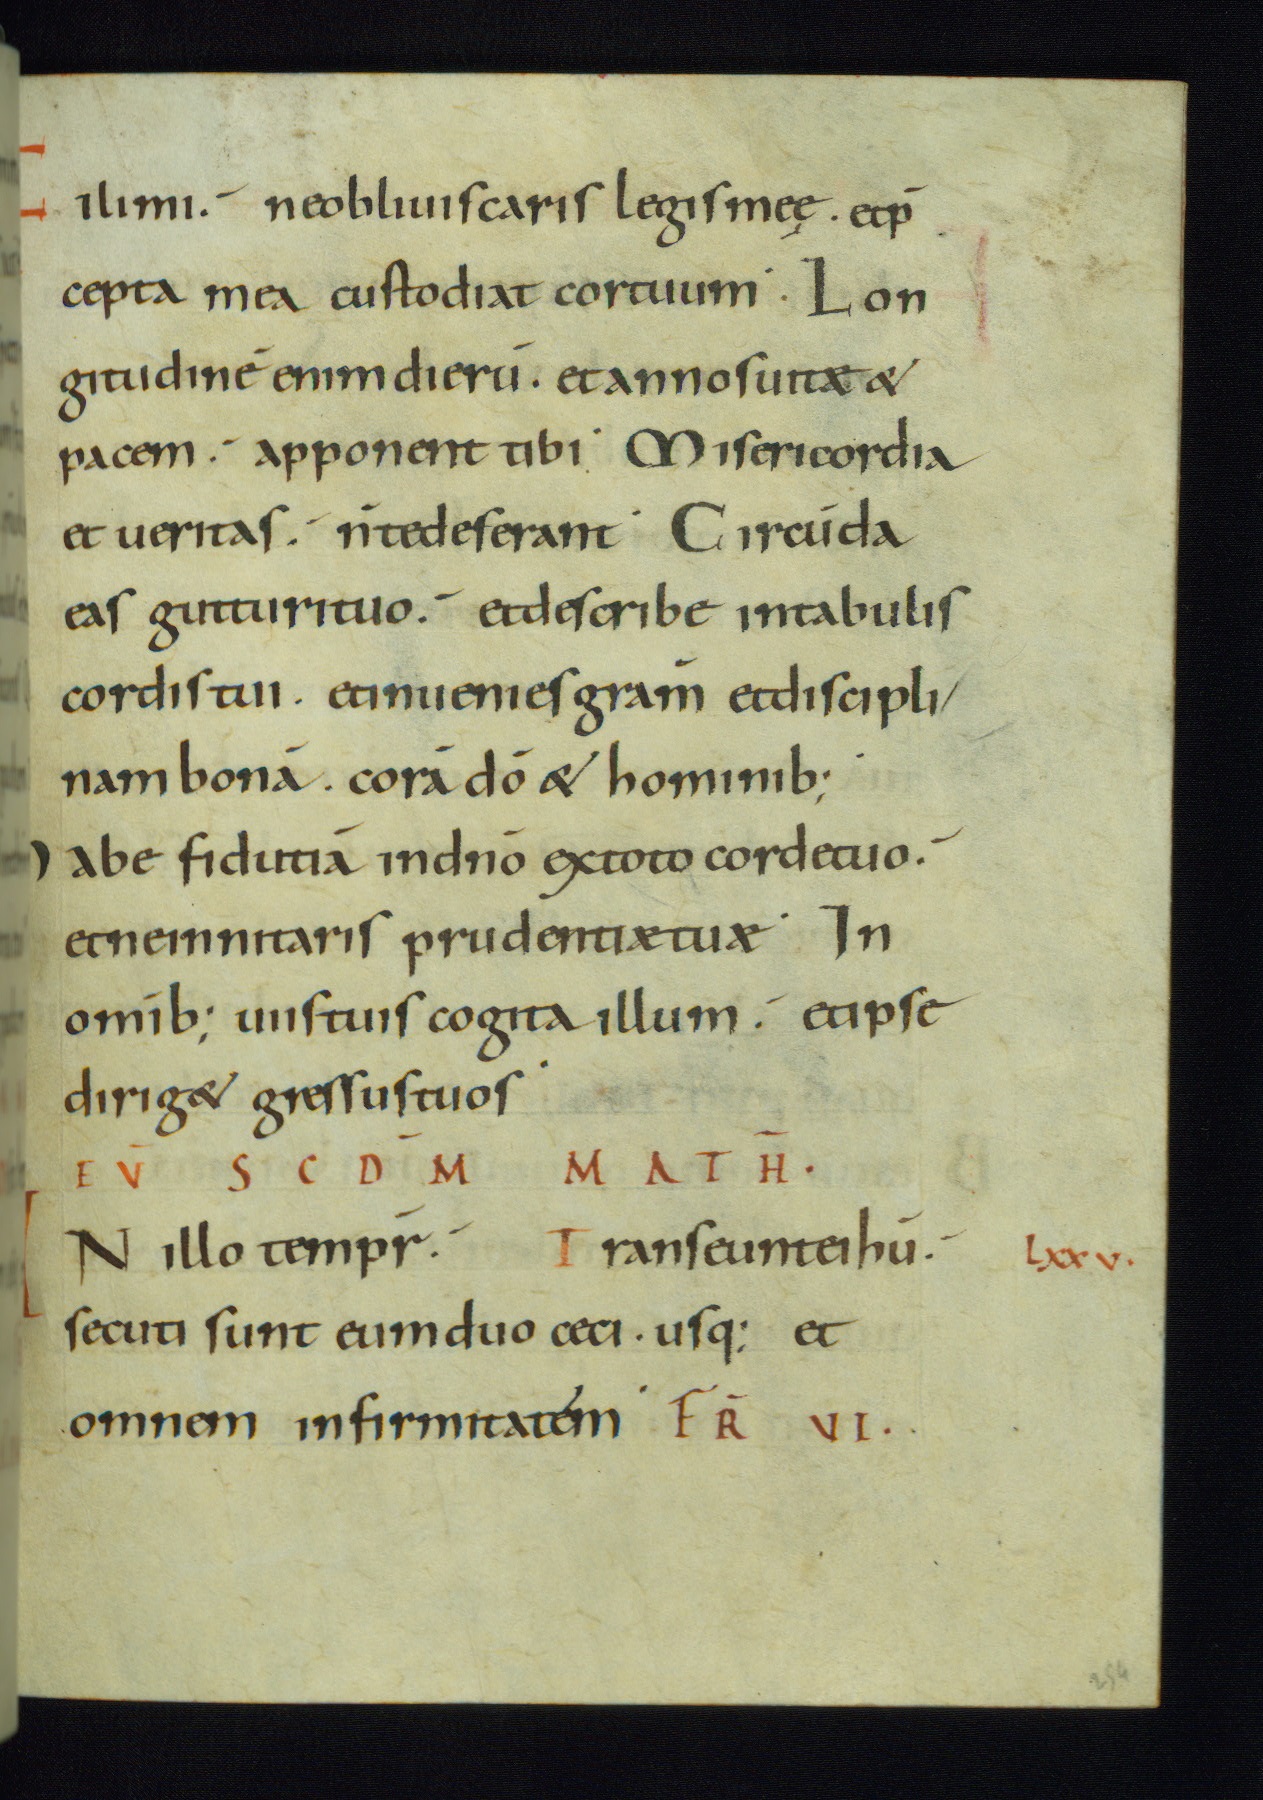 Filimi. neobliuiscaris legis meę. etp̄
cepta mea custodiat cortuum. Lon
gitudinē enim dierū. et annosuitæ &
pacem. apponent tibi. Misericordia
et ueritas. n̄tedeserant. Circūda
eas gutturituo. etdescribe intabulis
cordistui. etinuenies gram̄ etdiscipli/
nam bonā. corā dō & hominib;
abe fidutiā indnō extoto cordetuo.
etneinnitaris prudentiætuæ. In
omīb; uiistuis cogita illum. etipse
dirig& gressustuos
EV̄ SCDM̄ MATH̄.
IN illo temp̄r. Transeunteihū. Lxxv.
secuti sunt eumduo ceci. usq; et
omnem infirmitatém. FR̄ VI.
254